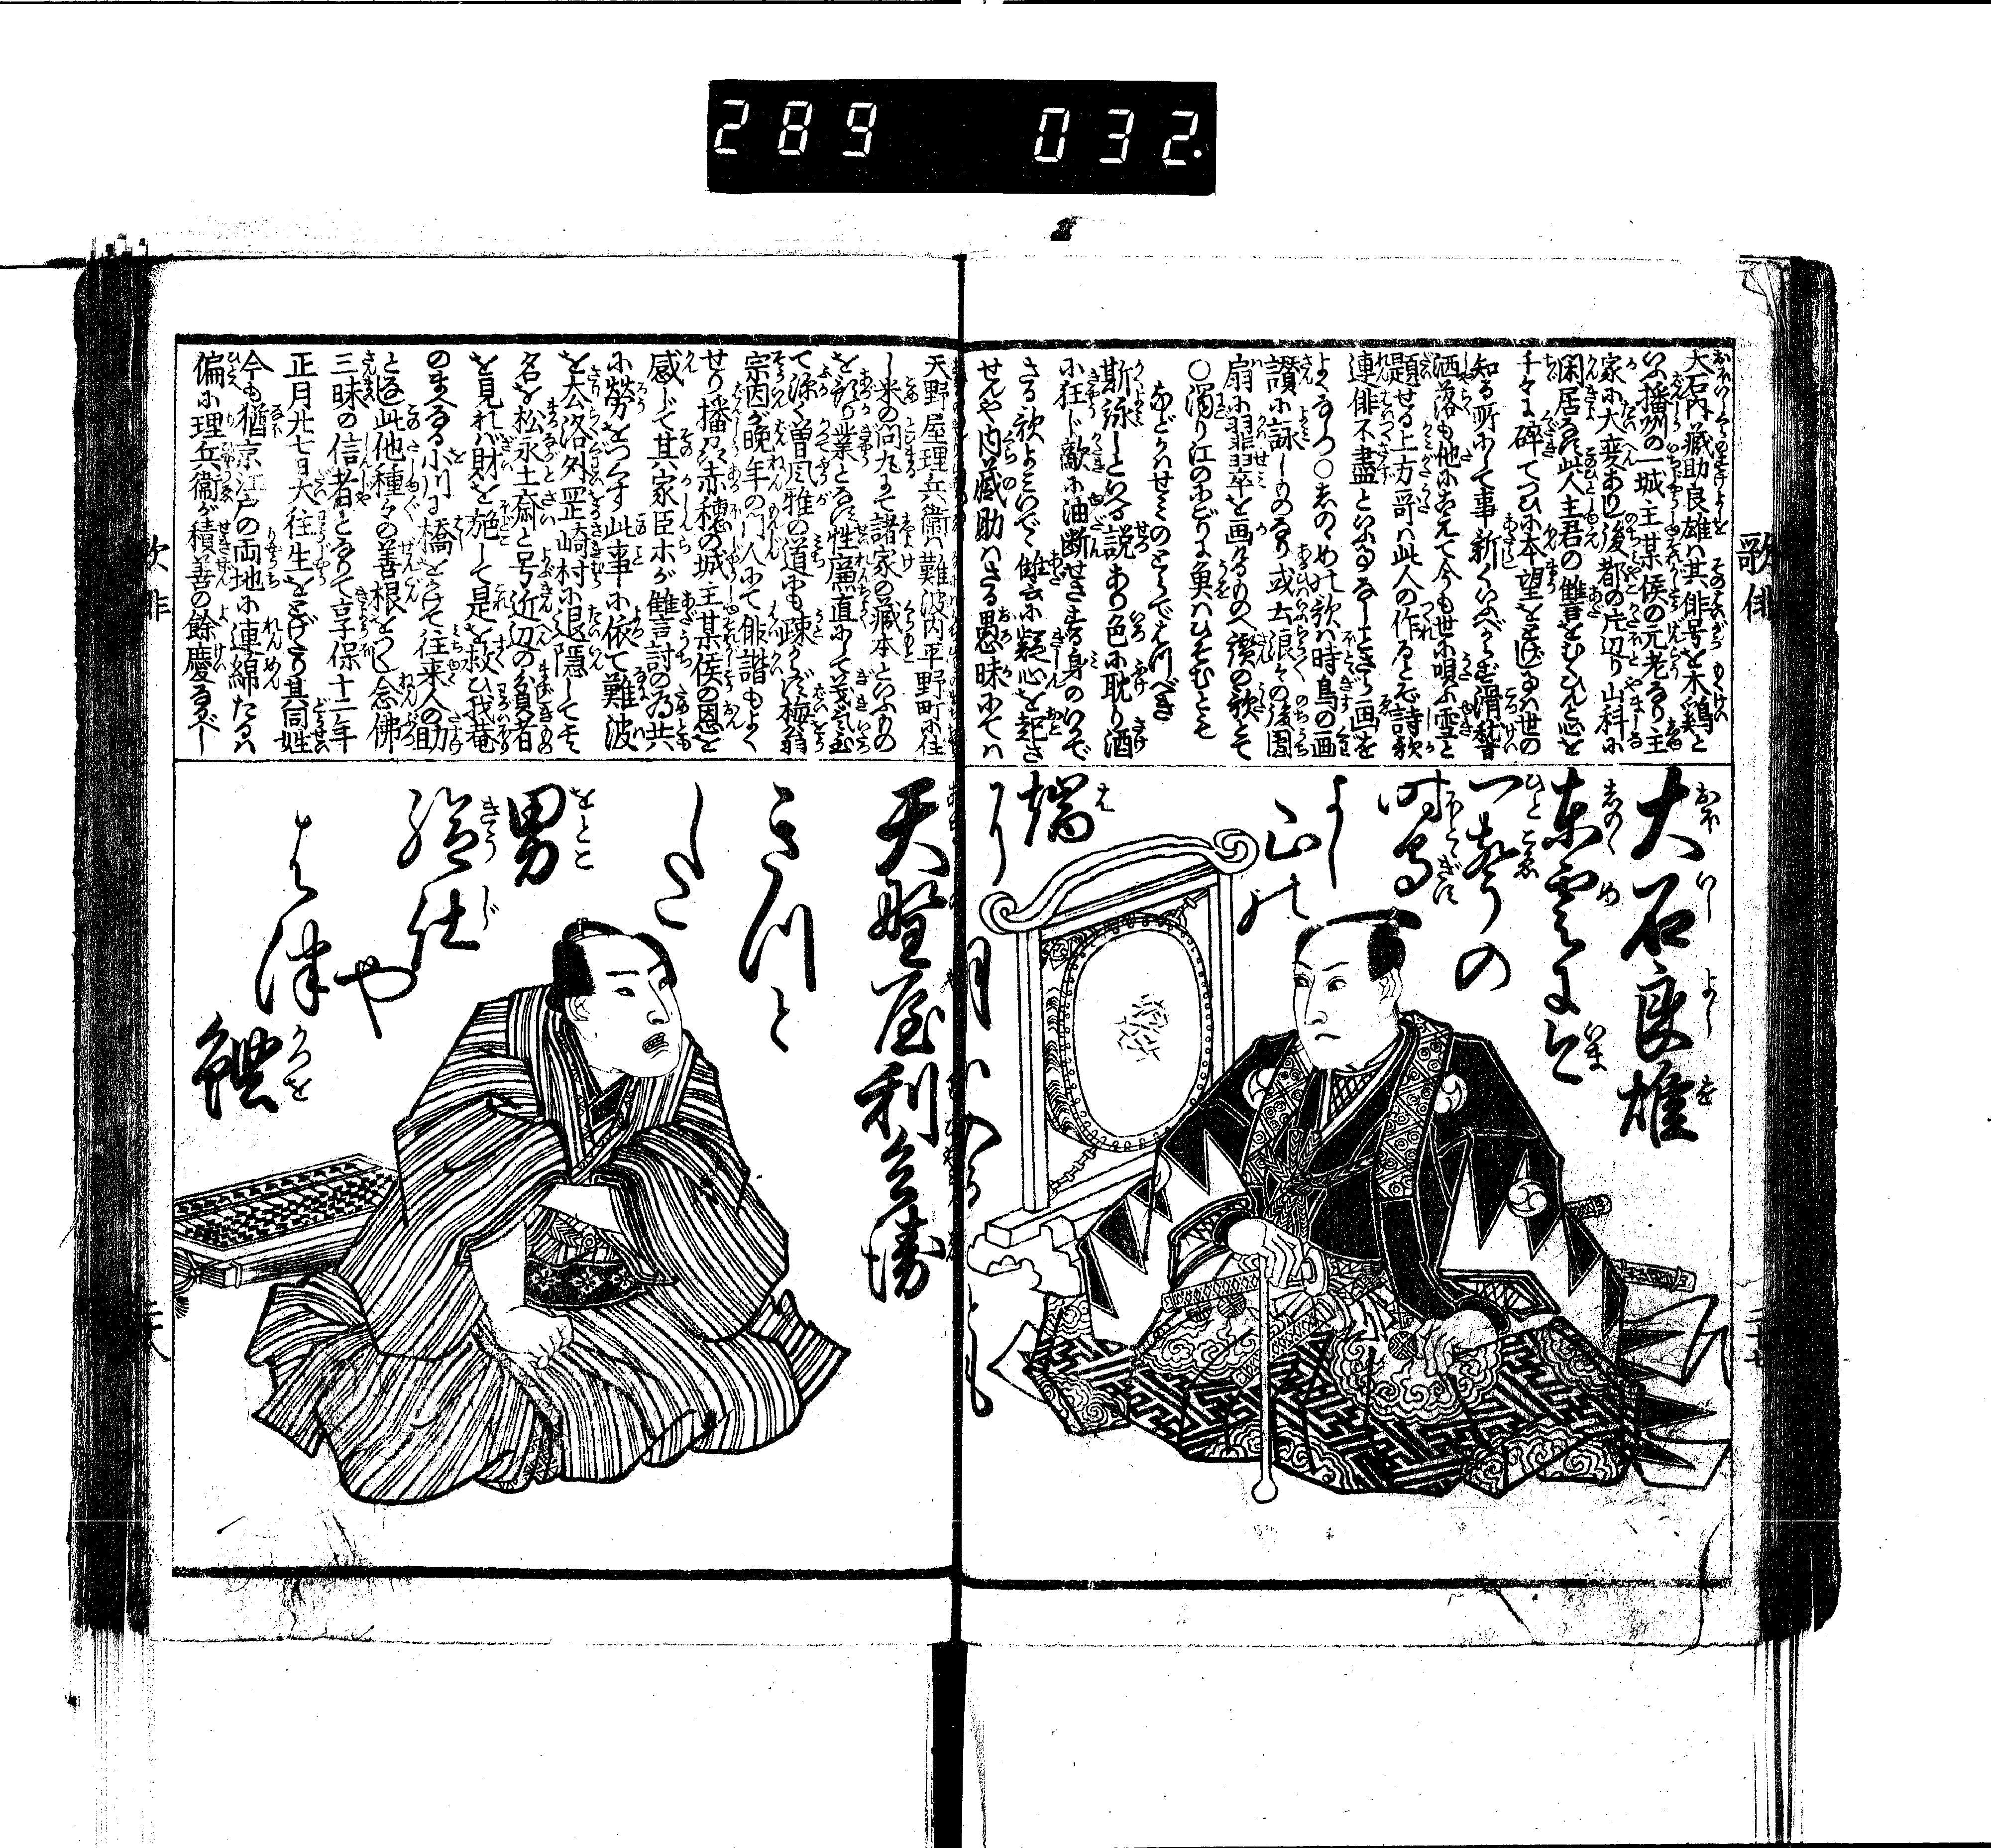 289 032.
歌俳
大石内藏助良雄ハ其俳号を木鶏と
いふ播州の一城主某侯の元老なり主
家に大変あり後都の片辺り山科に
閑居なせ此人主君の讐をむくひん心を
千々に碎てつひに本望をとげるハ世の
知る所にして事新くいふべからず滑稽
洒落も他にこえて今も世に唄ふ雪と
題せる上方哥ハ此人の作なるとぞ詩歌
連俳不盡といふるなしときら画を
よくなつ○志のゝめの歌ハ時鳥の画
讃に詠しものなり或去浪々の後團
扇に翡翠を画けるものへ讃の歌とて
○濁り江のにどりま魚ハひそむとも
などかハせミのとらでおくべき
斯詠しといへる説あり色に耽り酒
に狂じ敵に油断せさする身のいかで
さる歌よミいでゝ讐に疑心を起さ
せんや内藏助ハさる愚昧にてハ
大石良雄
東雲よ今
一聲の
時鳥
よし
山の
端
に
月ハ入るとも
天野屋理兵衞ハ難波内平野町に住
し米の問丸にて諸家の藏本といふもの
を家の業となせ性廉直にして義氣
て深く曽風雅の道にも疎からず梅翁
宗因が晩年の門人にて俳諧もよく
せり播州赤穂の城主某侯の恩を
感じて其家臣等が讐討の為共
に勞をつくす此事に依て難波
を去洛外罡崎村に退隠して
名を松永土齋と号近辺の貧者
を見れバ財を施して是を救ひ我菴
のまへなる小川に橋をかけて往来人の助
となし此他種々の善根をつく念佛
三昧の信者となりて享保十二年
正月廿七日大往生をとげたり其同姓
今も猶京江戸の両地に連綿たるハ
偏に理兵衞が積善の餘慶なるべし
天野屋利兵衛
きつと
した
男
給仕や
はつ
鰹